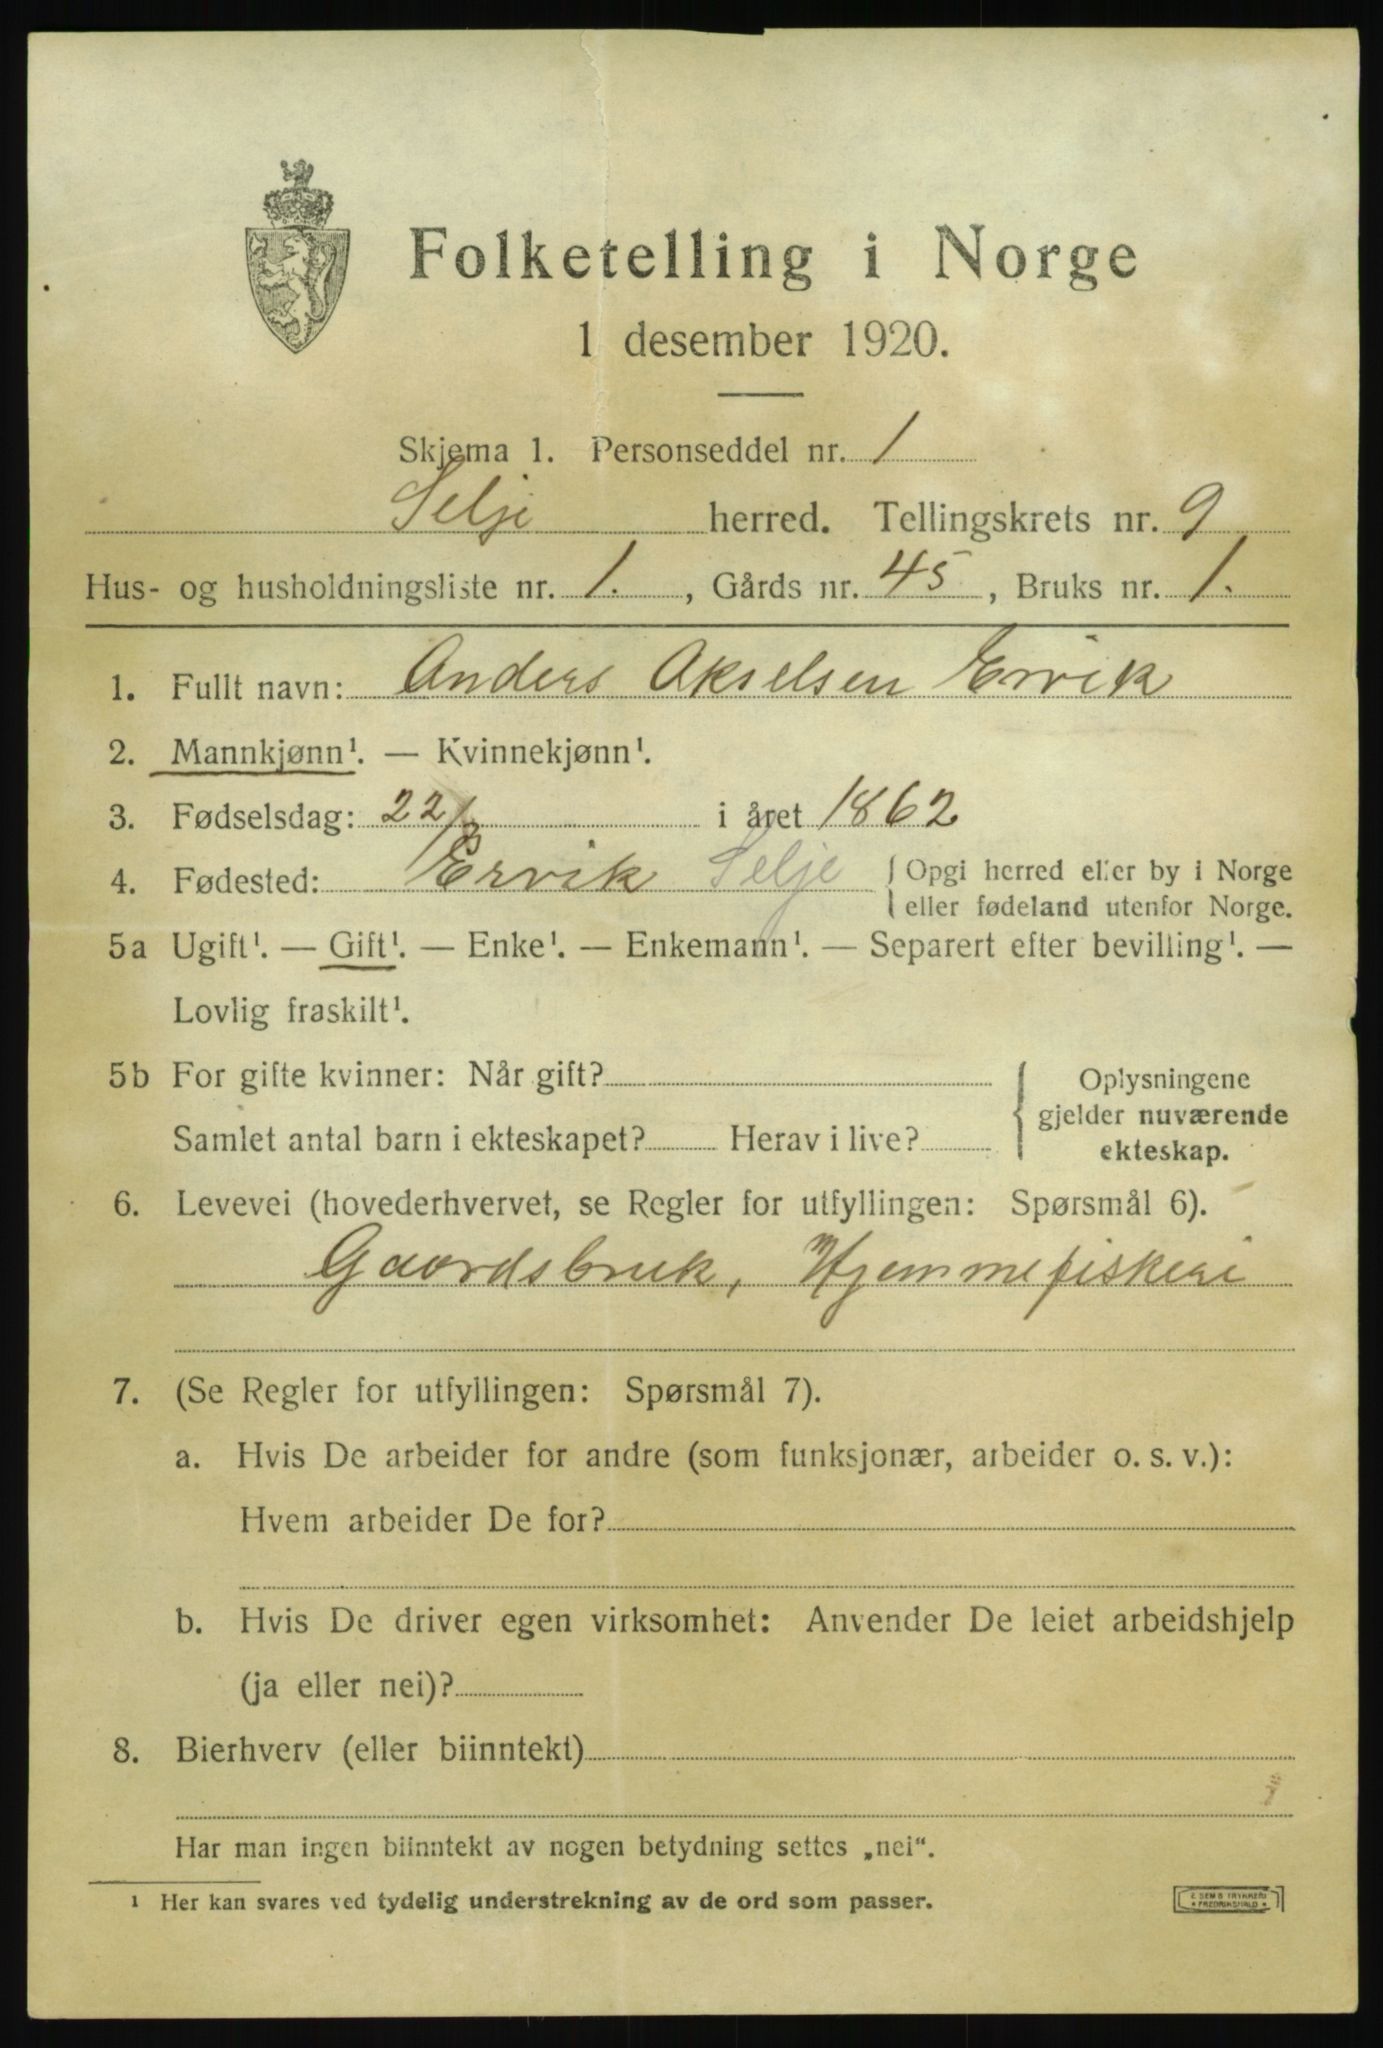 Folketelling i Norge
1 desember 1920.
Skjema 1. Personseddel nr. 1
Selje herred. Tellingskrets nr. 9
Hus- og husholdningsliste nr. 1. , Gårds nr. 45 , Bruks nr. 1.
1. Fullt navn: Anders Akselsen Ervik
2. Mannkjønn¹. — Kvinnekjønn¹.
3. Fødselsdag: 22/3 i året 1862
4. Fødested: Ervik Selje { Opgi herred eller by i Norge
eller fødeland utenfor Norge.
5a Ugift¹. — Gift¹. — Enke¹. — Enkemann¹. — Separert efter bevilling¹. —
Lovlig fraskilt¹.
5b For gifte kvinner: Når gift?
Samlet antal barn i ekteskapet? Herav i live?
{ Oplysningene
gjelder nuværende
ekteskap.
6. Levevei (hovederhvervet, se Regler for utfyllingen: Spørsmål 6).
Gaardsbruk, Hjemmefiskeri
7. (Se Regler for utfyllingen: Spørsmål 7).
a. Hvis De arbeider for andre (som funksjonær, arbeider o. s. v.):
Hvem arbeider De for?
b. Hvis De driver egen virksomhet: Anvender De leiet arbeidshjelp
(ja eller nei)?
8. Bierhverv (eller biinntekt)
Har man ingen biinntekt av nogen betydning settes „nei“.
¹ Her kan svares ved tydelig understrekning av de ord som passer.
E SEMS TRYKKERI
* FREDRIKSHALD *